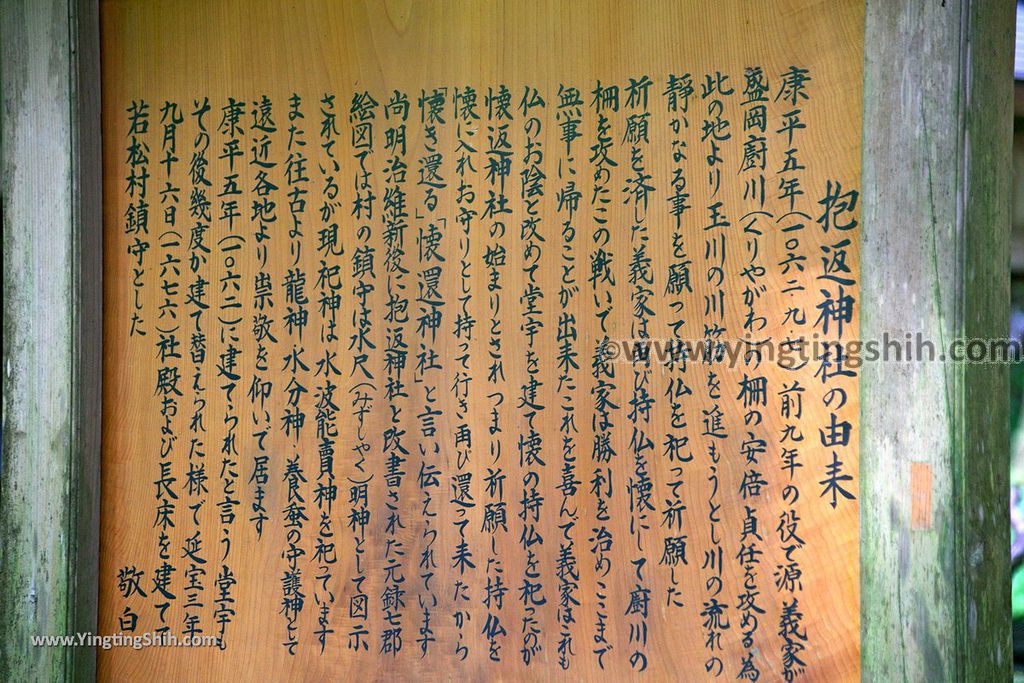 抱返神社の由来
康平五年（一〇六二、九、七）前九年の役で源義家が
盛岡厨川（くりやがわ）の柵の安倍貞任を攻める為
此の地より玉川の川筋を進もうとし川の流れの
静かなる事を願って持仏を祀って祈願した
祈願を済した義家は再び持仏を懐にして厨川の
柵を攻めたこの戦いで義家は勝利を治めここまで
無事に帰ることが出来たこれを喜んで義家はこれも
仏のお陰と改めて堂宇を建て懐の持仏を祀ったのが
懐返神社の始まりとされつまり祈願した持仏を
懐に入れお守りとして持って行き再び還って来たから
「懐き還る」「懐還神社」と言い伝えられています
尚明治維新後に抱返神社と改書された元録七郡
絵図では村の鎮守は水尺（みずしゃく）明神として図示
されているが現祀神は水波能賣神を祀ています
また往古より龍神水分神、養蚕の守護神として
遠近各地より崇敬を仰いで居ます
康平五年（一〇六二）に建てられたと言う堂宇も
その後幾度か建て替えられた様で延宝三年
九月十六日（一六七六）社殿および長床を建て
若松村鎮守とした
敬白
©www.yingtingshih.com
www.YingtingShih.com